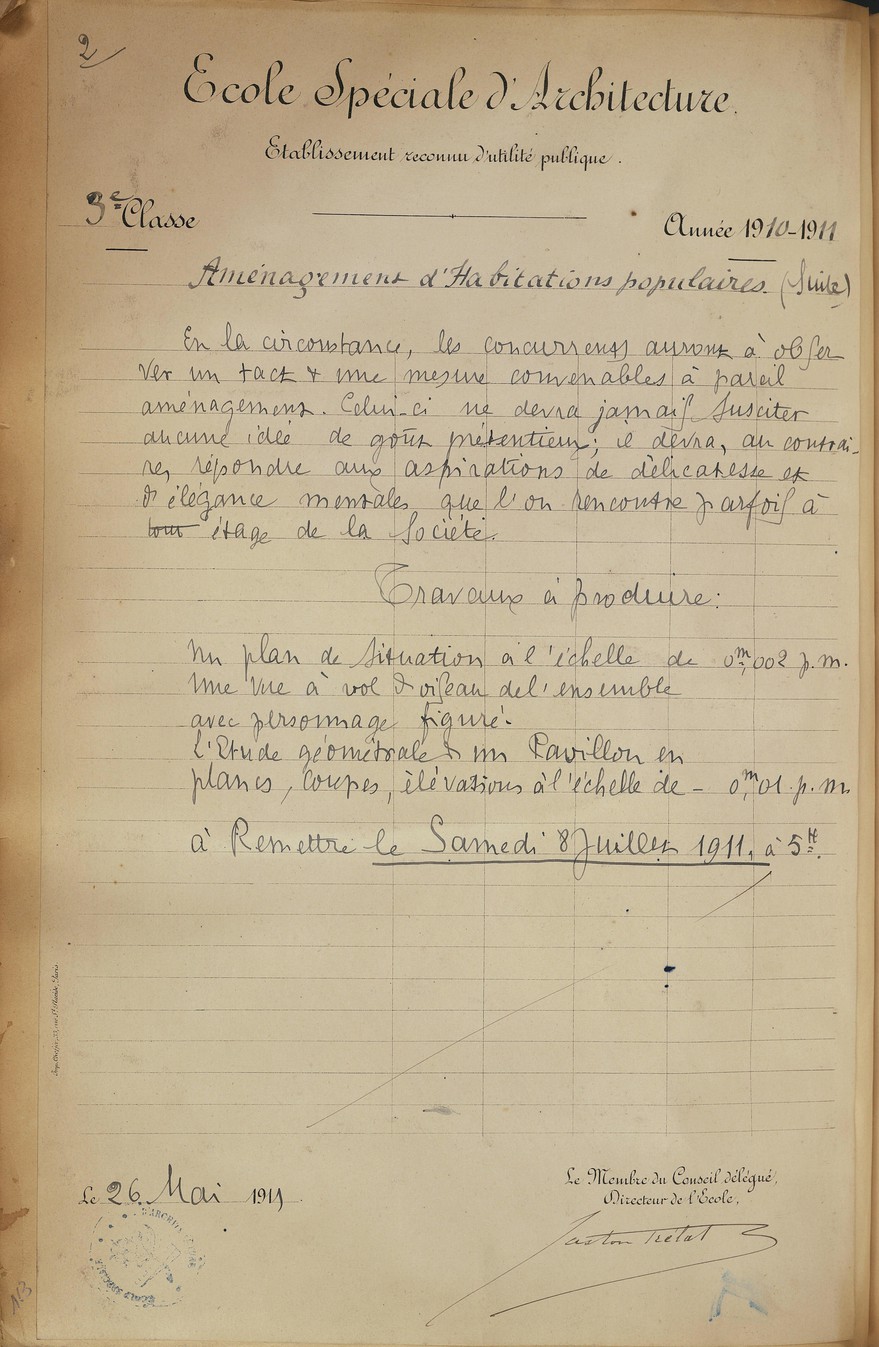 2
Ecole Spéciale d'Architecture.
Etablissement reconnu d'utilité publique.
3e Classe
Année 1910-1911
Aménagement d'Habitations populaires. (Suite)
En la circonstance, les concurrents auront à obser
ver un tact & une mesure convenables à pareil
aménagement. Celui-ci ne devra jamais susciter
aucune idée de goût prétentieux; il devra, au contrai-
re, répondre aux aspirations de délicatesse et
d'élégance mentales que l'on rencontre parfois à
tout étage de la Société.
Travaux à produire:
Un plan de situation à l'échelle de 0m,002 p.m.
Une vue à vol d'oiseau de l'ensemble
avec personnage figuré.
L'Etude géométrale d'un Pavillon en
plans, coupes, élévations à l'échelle de - 0m,01 p.m.
à Remettre le Samedi 8 Juillet 1911, à 5H.
Le 26 Mai 1911.
Le Membre du Conseil délégué,
Directeur de l'Ecole,
Gaston Trélat
113